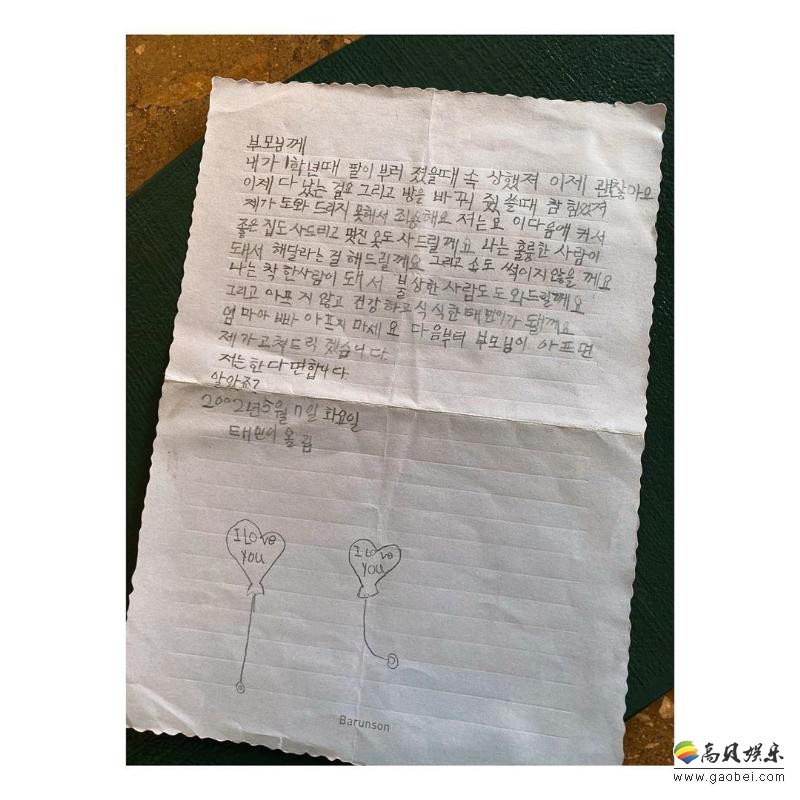 부모님께
내가 1학년때 팔이 부러 졌을때 속 상했져 이제 괜찮아요
이제 다 났는 걸요 그리고 방을 바 꿔 줬 쓸때 참 힘었져
제가 도와 드리지 못해서 죄송해요 저는요 이다음에 커서
좋은 집도 사드리고 멋진 옷도 사드릴 께요 나는 훌륭한 사람이
돼서 해달라는걸 해드릴께요 그리고 속도 썩이지않을 께요
나는 착 한사람이 돼서 불상한 사람도 도와드릴께요
그리고 아프 지 않고 건강 하고 식 식한 태민이가 될께요
엄 마아 빠 아프지 마세 요 다음부터 부모님이 아프면
제가고쳐드리 겠습니다.
저는한 다 면합니다.
알았죠?
2002년5월 7일 화요일
태민이 올 림
I Love
you
I Love
you
Barunson
高贝娱乐
www.gaobei.com